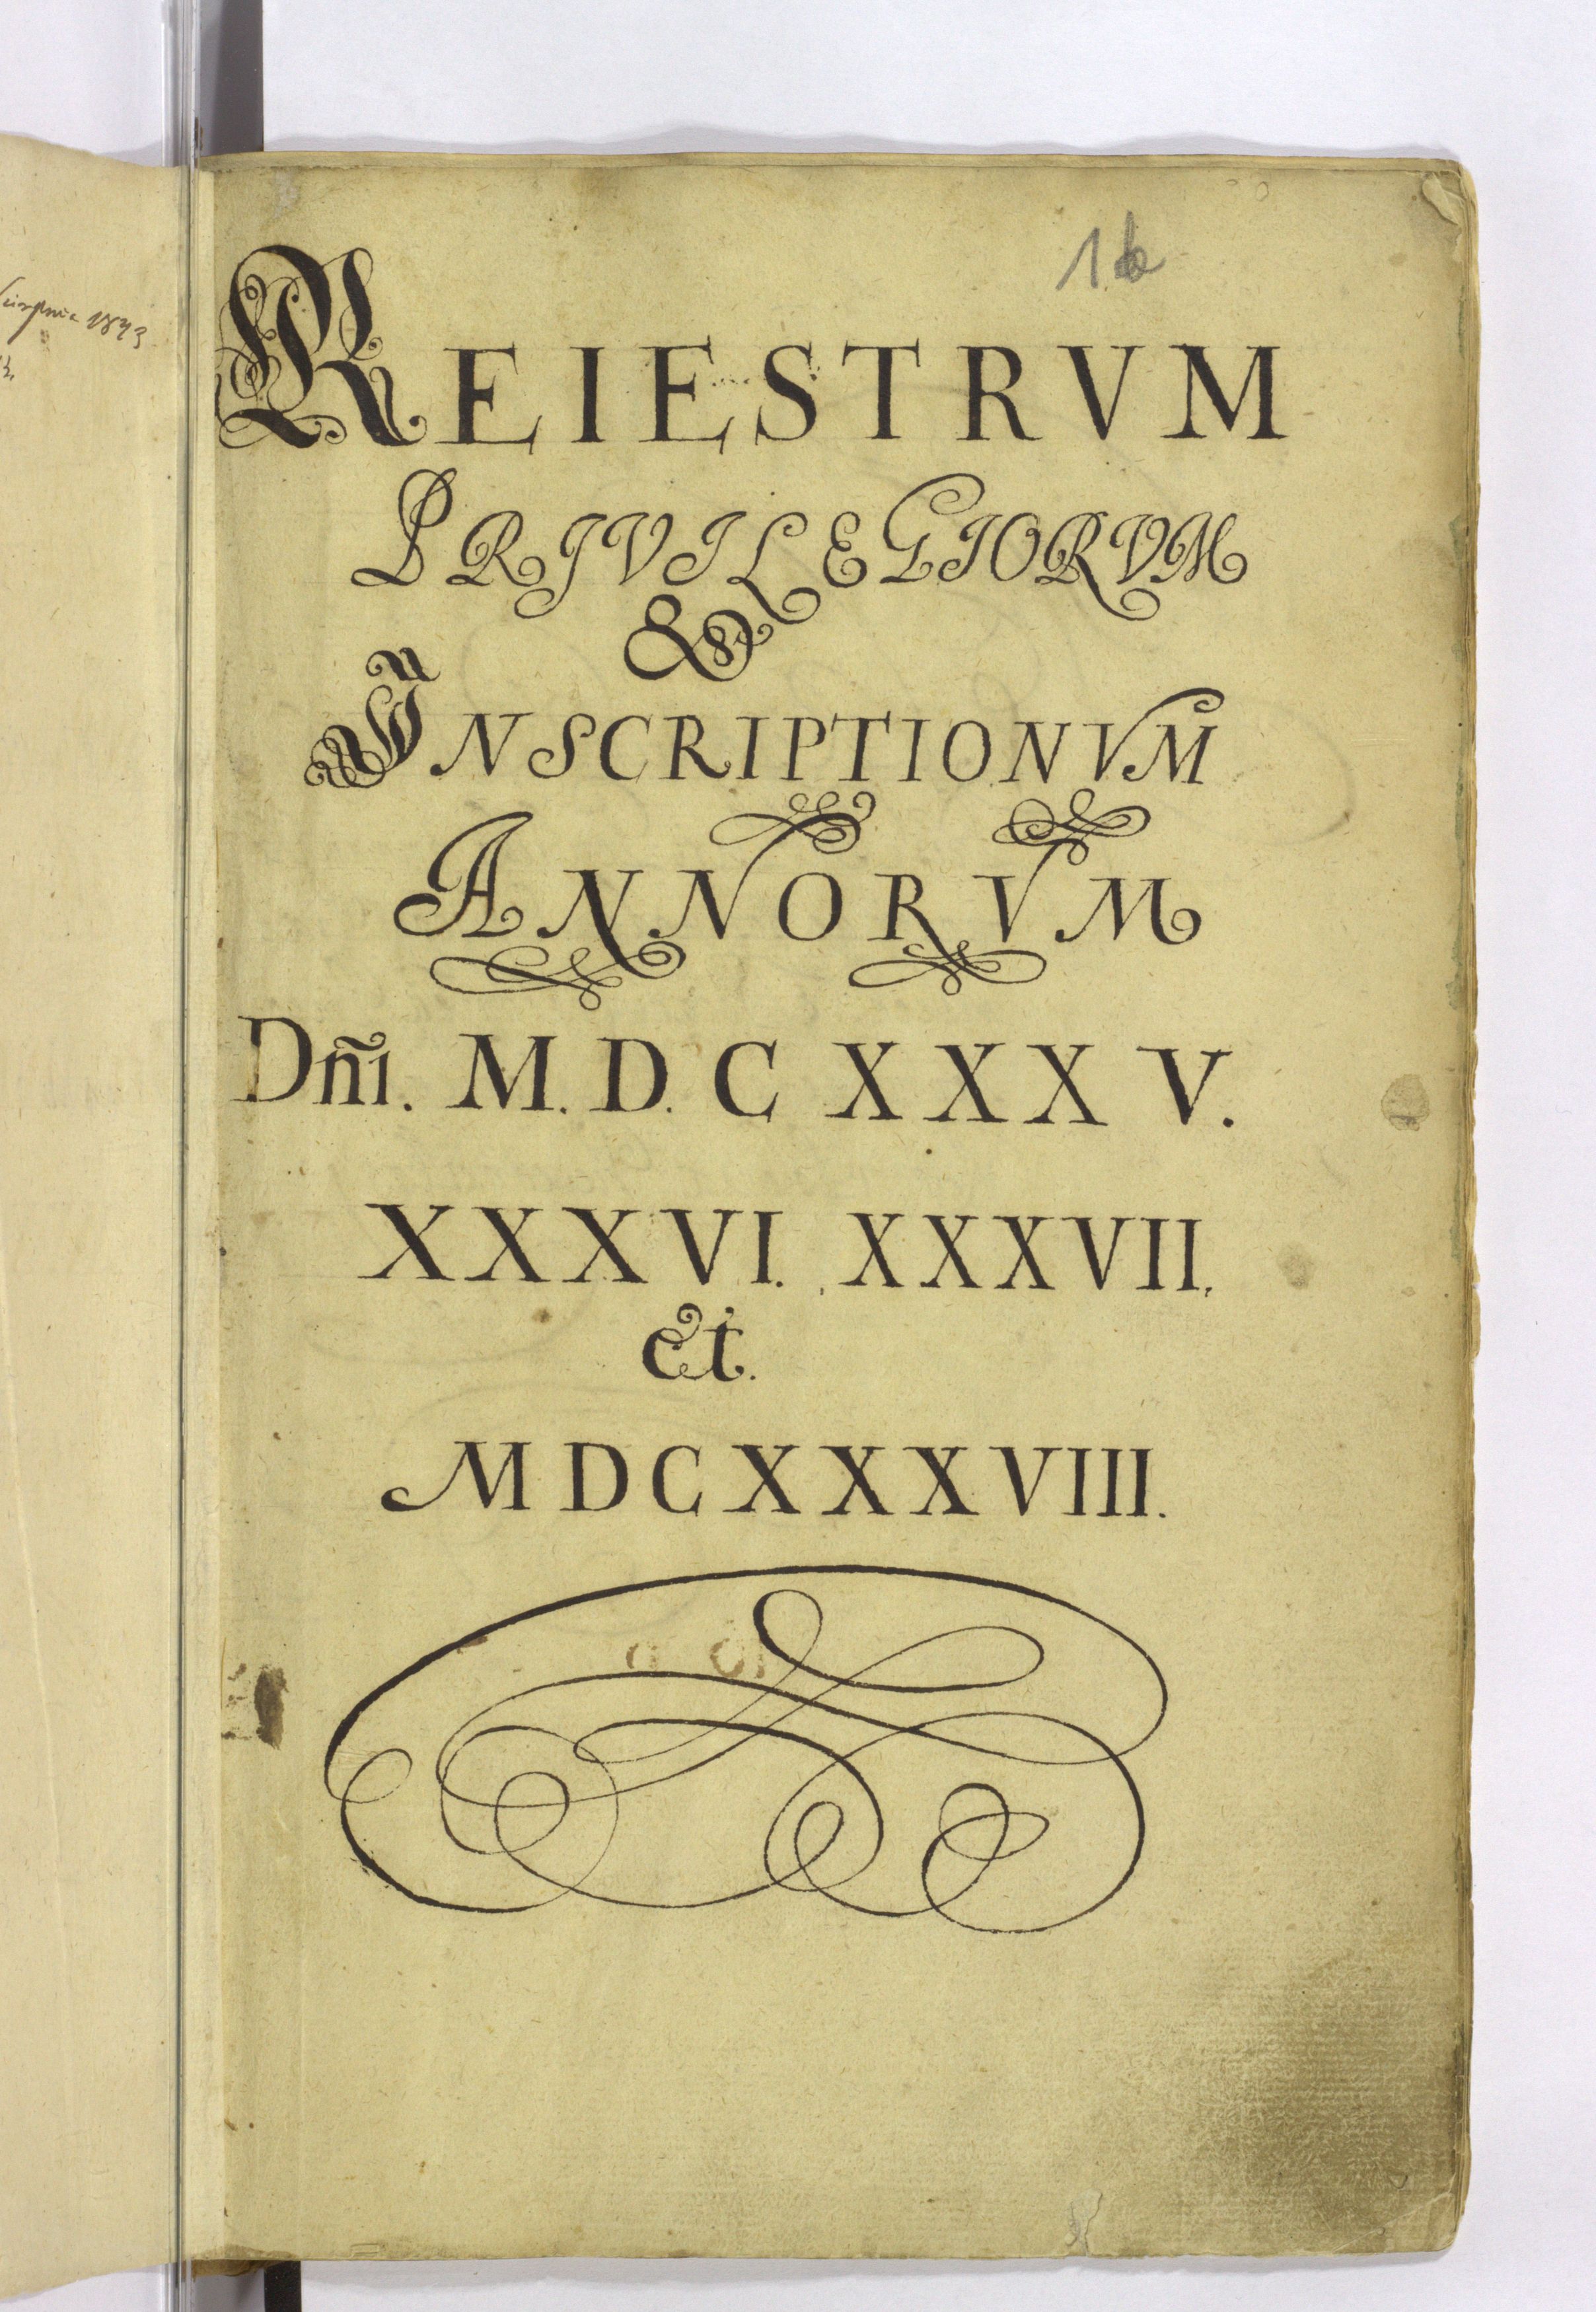 1b
REIESTRVM
PRJVILEGIORVM
&
INSCRIPTIONVM
ANNORVM
Dn̄i. M. D. C X X X V.
XXXVI. XXXVII.
et.
MDCXXXVIII.
1843